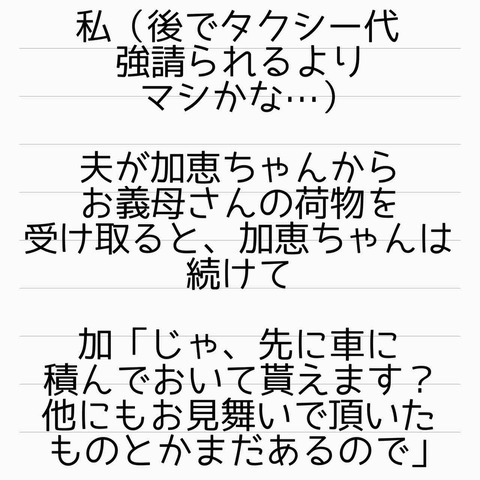 私（後でタクシー代
強請られるより
マシかな…）
夫が加恵ちゃんから
お義母さんの荷物を
受け取ると、加恵ちゃんは
続けて
加「じゃ、先に車に
積んでおいて貰えます？
他にもお見舞いで頂いた
ものとかまだあるので」